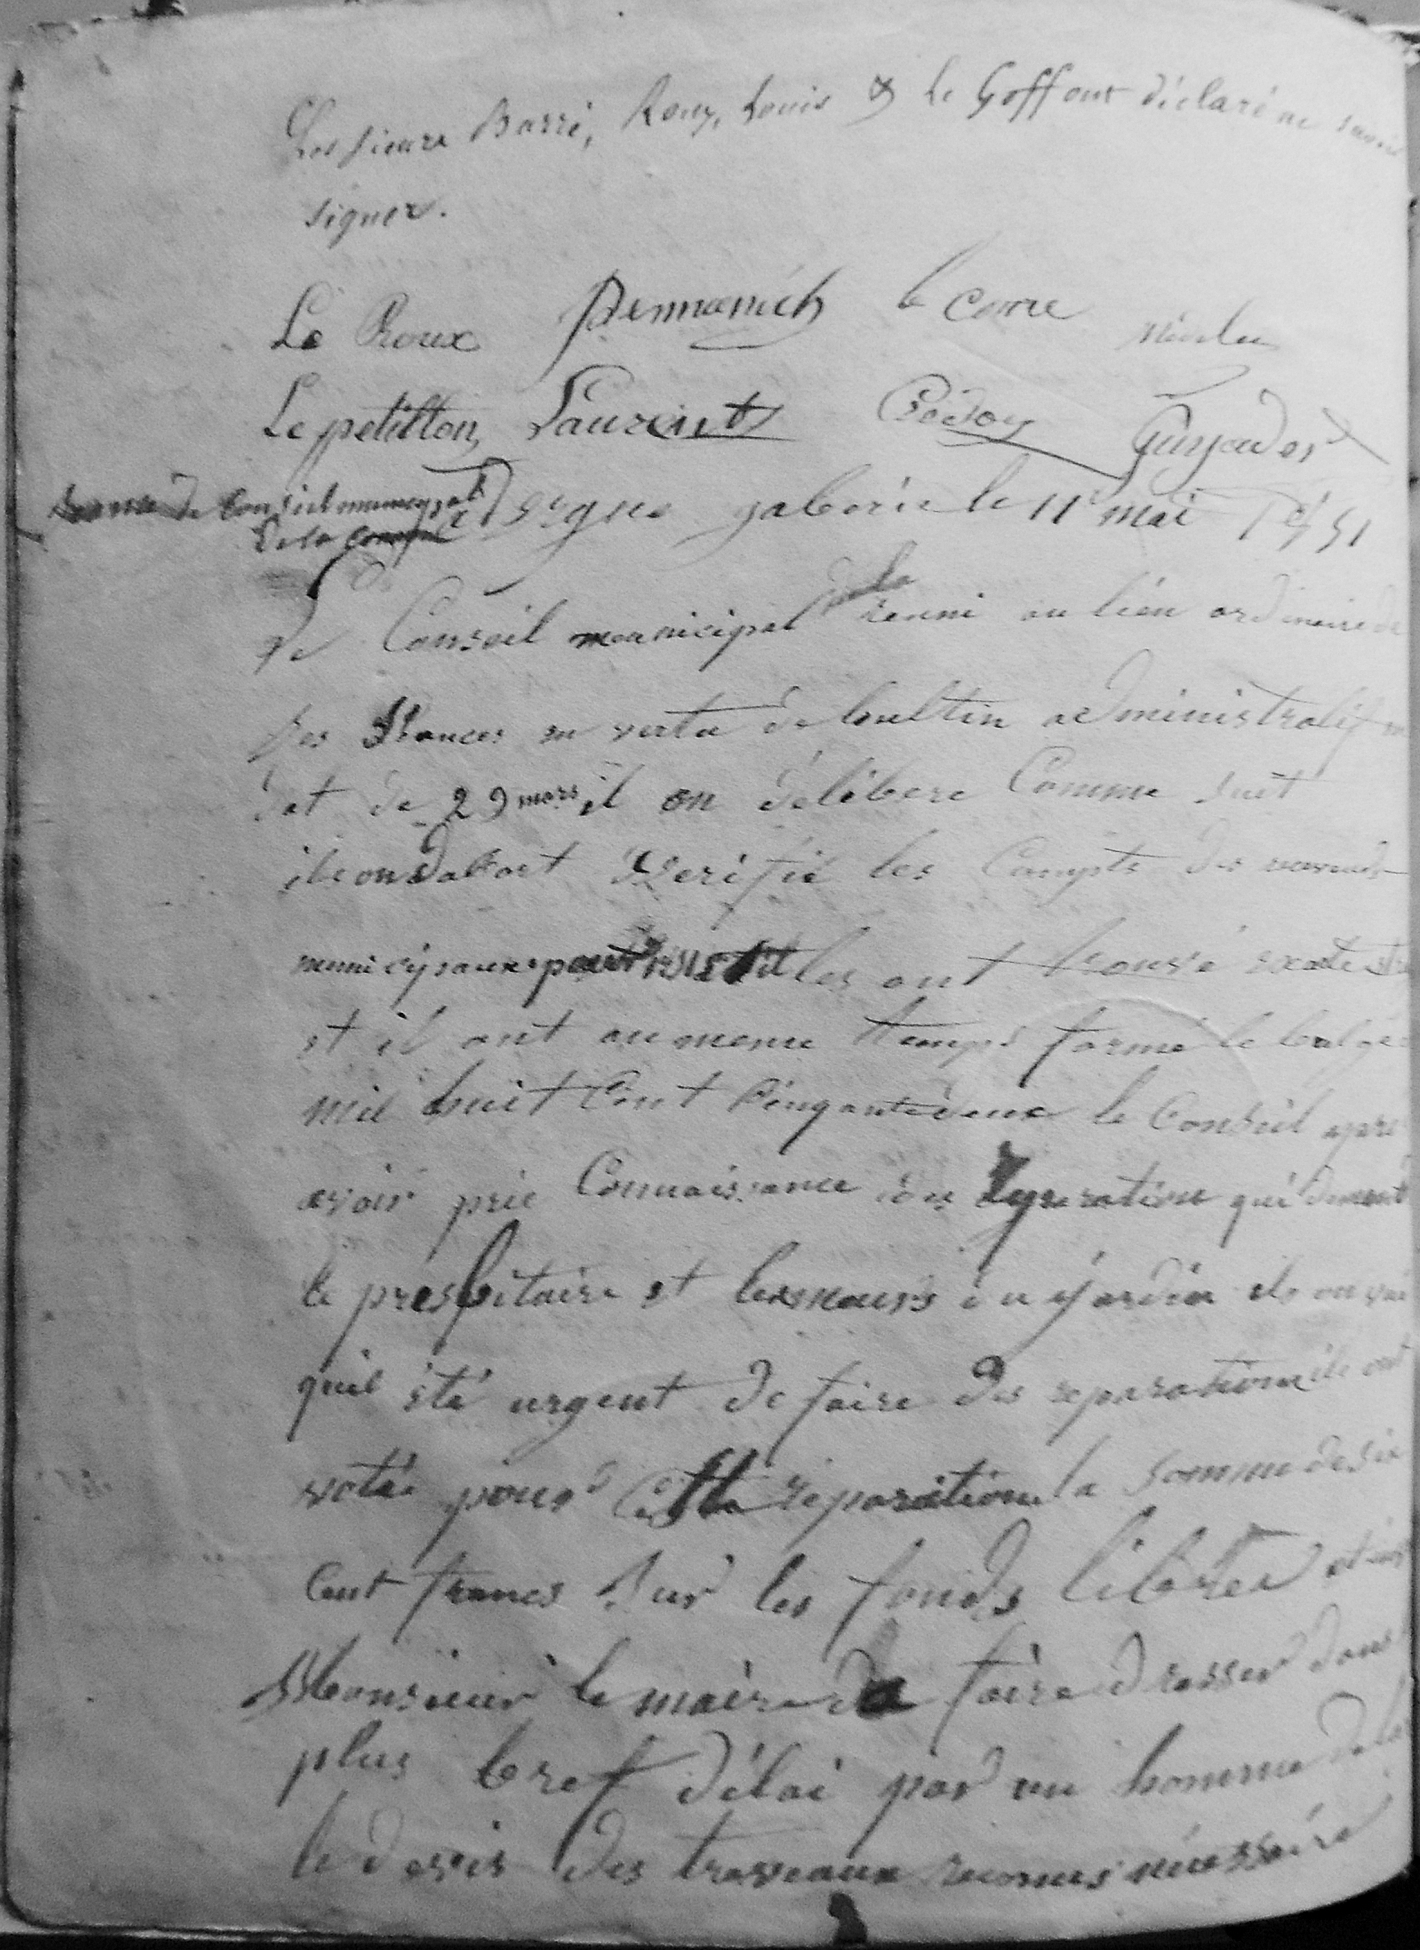 Les sieurs Barré, Rouz, Louis & Le Goff ont déclaré ne savoir
signer.
Le Roux Pennanéch le Corre Nicolas
Le petillon, Laurent Crédou Guyader
de Conseil municipal
De la
Ergue gaberic le 11 mai 1851
Le Conseil municipal de la reuni au lieu ordinaire de
ses séances en vertu de bultin administratif en
dat de 29 mars il on délibere Comme suit
ils on dabort verifié les Compte des revenus
municipaux pour il les ont trouvé exacte
et il ont au meme temps formé le budge
mil huit Cent Cinquantedeux le Conseil apre
avoir prie Connaissance des reparation qui
le presbitaire et les murs du jardin ils on
quil été urgent de faire des reparation ils ont
votée pour Cette reparation la somme de six
Cent francs sur les fonds libres et
Monsieur le maire de faire dresser dans
plus bref délai par un homme de
le devis des traveaux reconus nécessaire